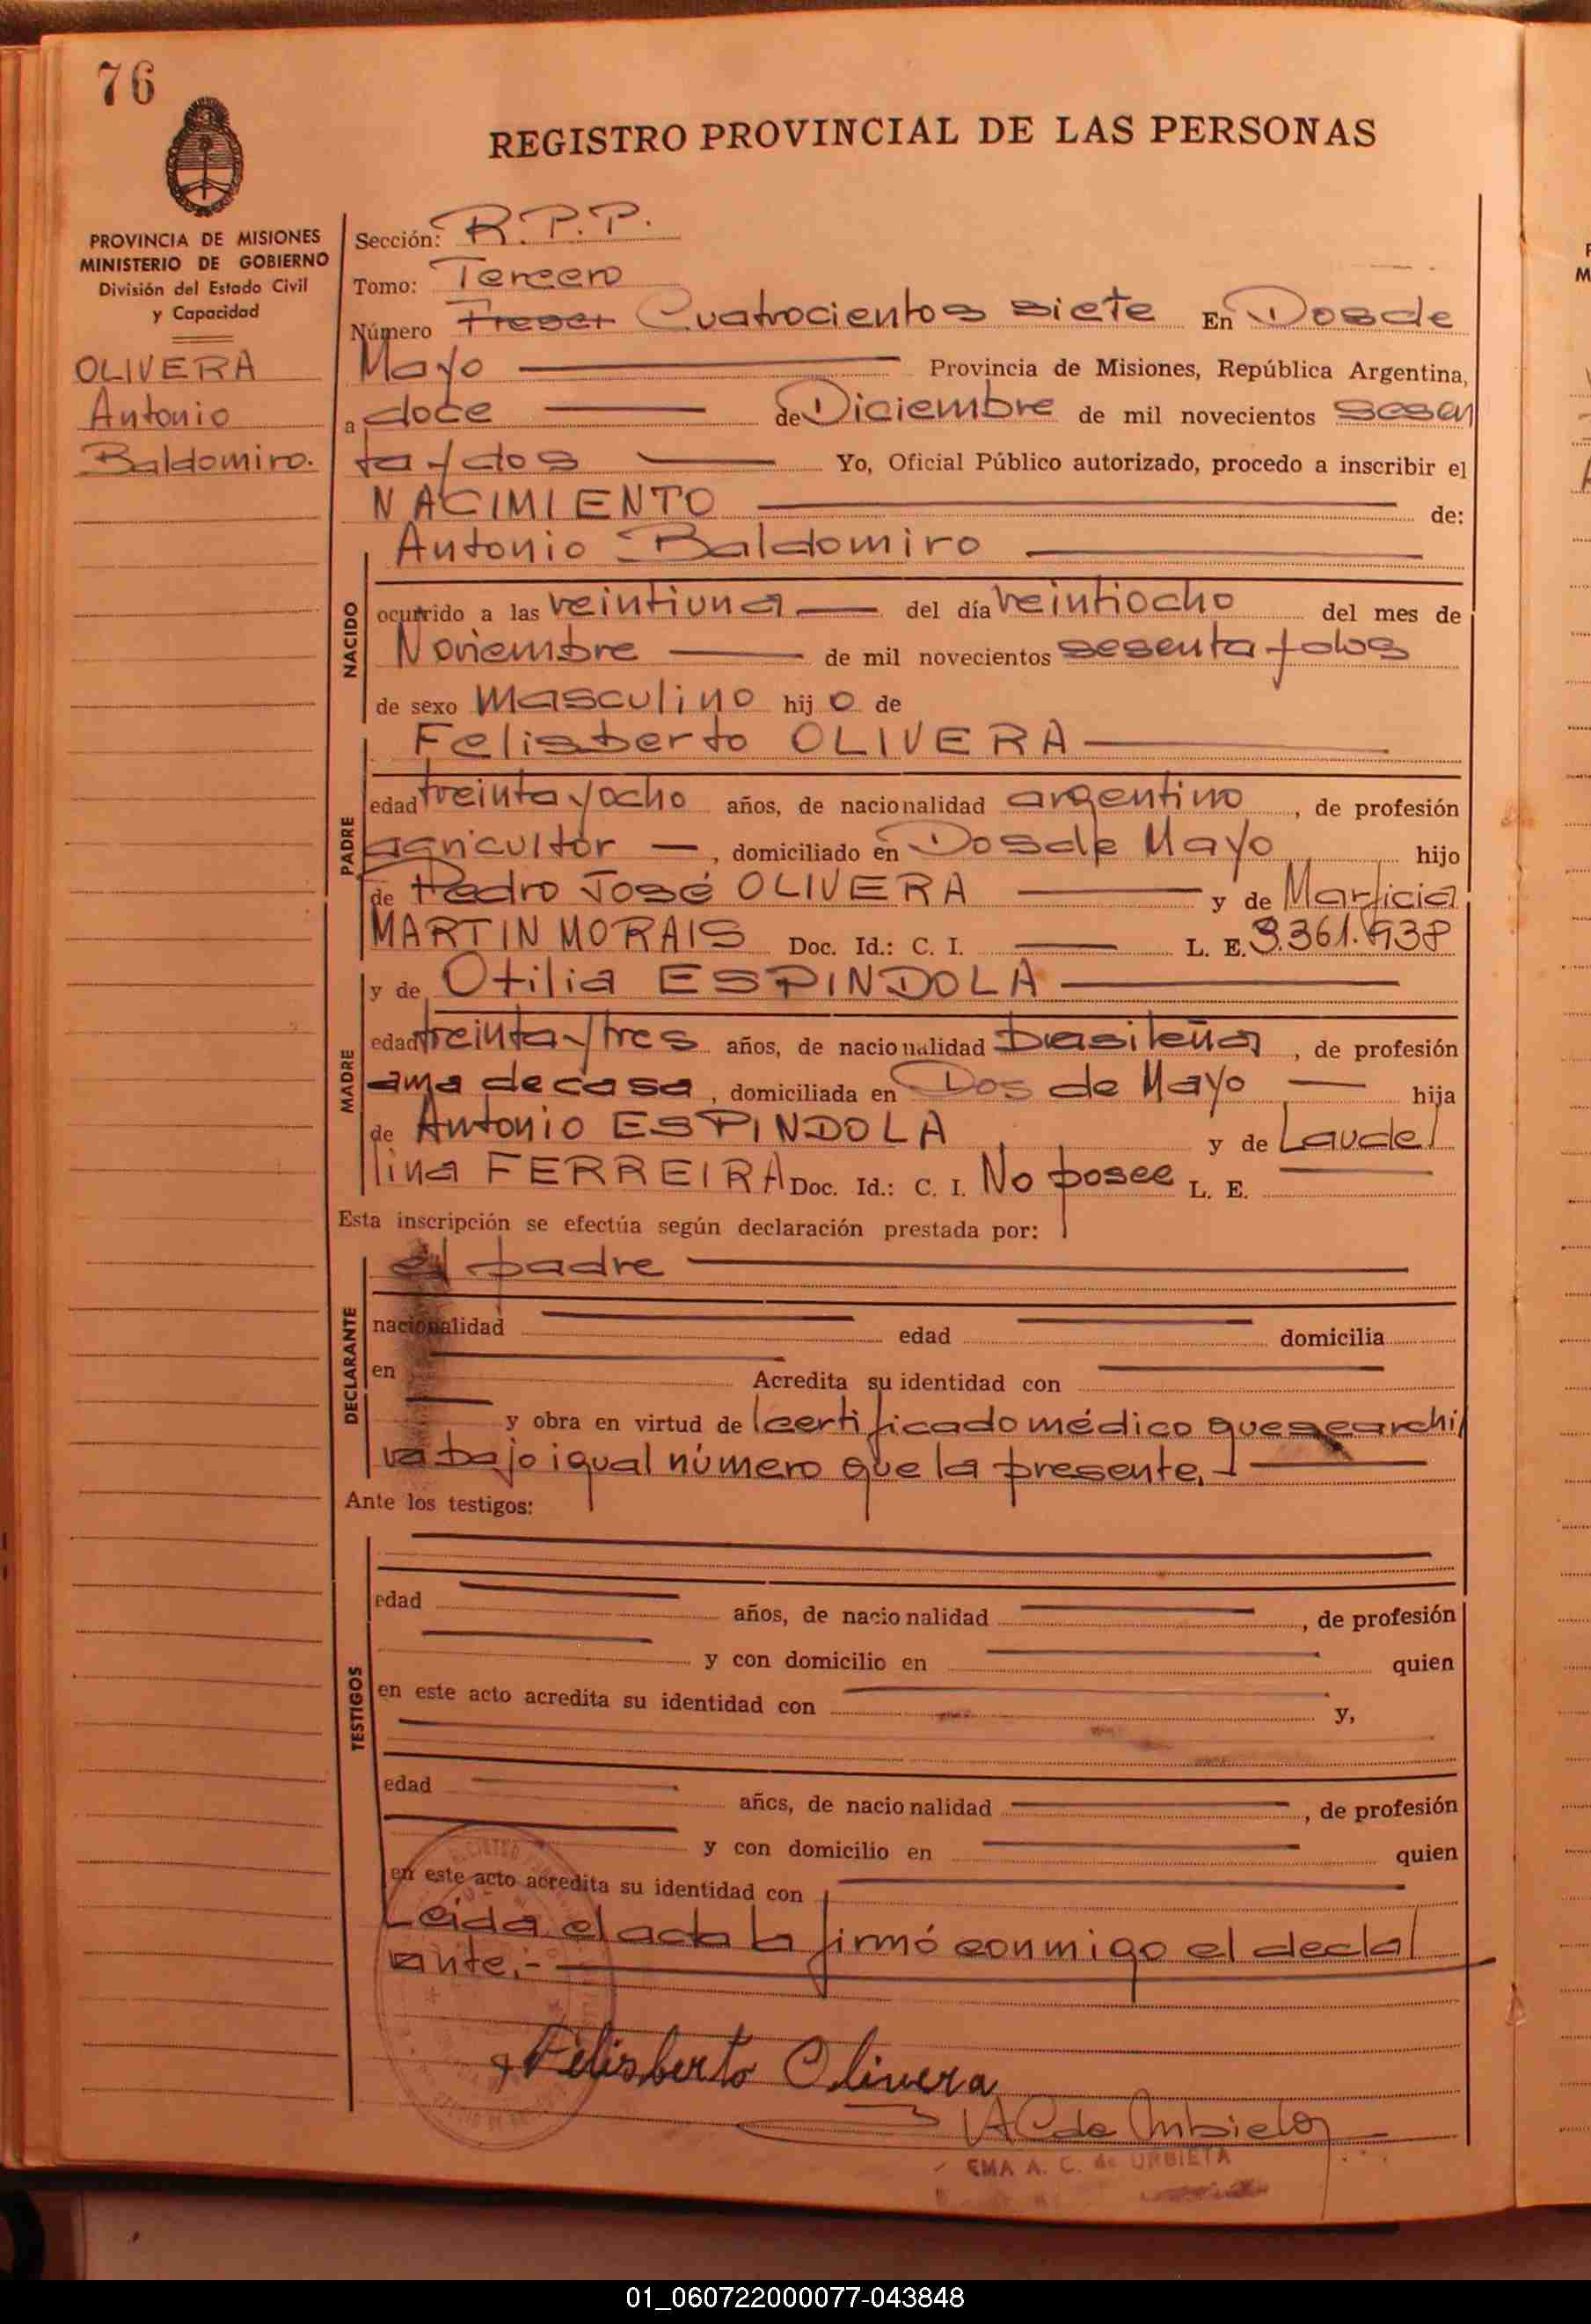 76
REGISTRO PROVINCIAL DE LAS PERSONAS
PROVINCIA DE MISIONES
MINISTERIO DE GOBIERNO
División del Estado Civil
y Capacidad
OLIVERA
Antonio
Baldomiro.
Sección: R.P.P.
Tomo: Tercero
Número Cuatrocientos siete En Dos de
Mayo Provincia de Misiones, República Argentina,
a doce de Diciembre de mil novecientos sesen
ta y dos Yo, Oficial Público autorizado, procedo a inscribir el
NACIMIENTO de:
Antonio Baldomiro
NACIDO
ocurrido a las veintiuna del día veintiocho del mes de
Noviembre de mil novecientos sesenta y dos
de sexo masculino hij o de
Felisberto OLIVERA
PADRE
edad treinta y ocho años, de nacionalidad argentino, de profesión
agricultor, domiciliado en Dos de Mayo hijo
de Pedro José OLIVERA y de
MARTIN MORAIS Doc. Id.: C. I. L. E.
y de Otilia ESPINDOLA
MADRE
edad treinta y tres años, de nacionalidad brasileña, de profesión
ama de casa, domiciliada en Dos de Mayo hija
de Antonio ESPINDOLA y de Laudel
lina FERREIRA Doc. Id.: C. I. No posee L. E.
Esta inscripción se efectúa según declaración prestada por:
el padre
DECLARANTE
nacionalidad edad domicilia
en Acredita su identidad con
y obra en virtud de certificado médico que se archi
va bajo igual número que la presente.-
Ante los testigos:
TESTIGOS
edad años, de nacionalidad , de profesión
y con domicilio en quien
en este acto acredita su identidad con y,
edad años, de nacionalidad , de profesión
y con domicilio en quien
en este acto acredita su identidad con
Leida el acta la firmó conmigo el decla
rante.-
Felisberto Olivera
EMA A. C. de URBIETA
01_060722000077-043848